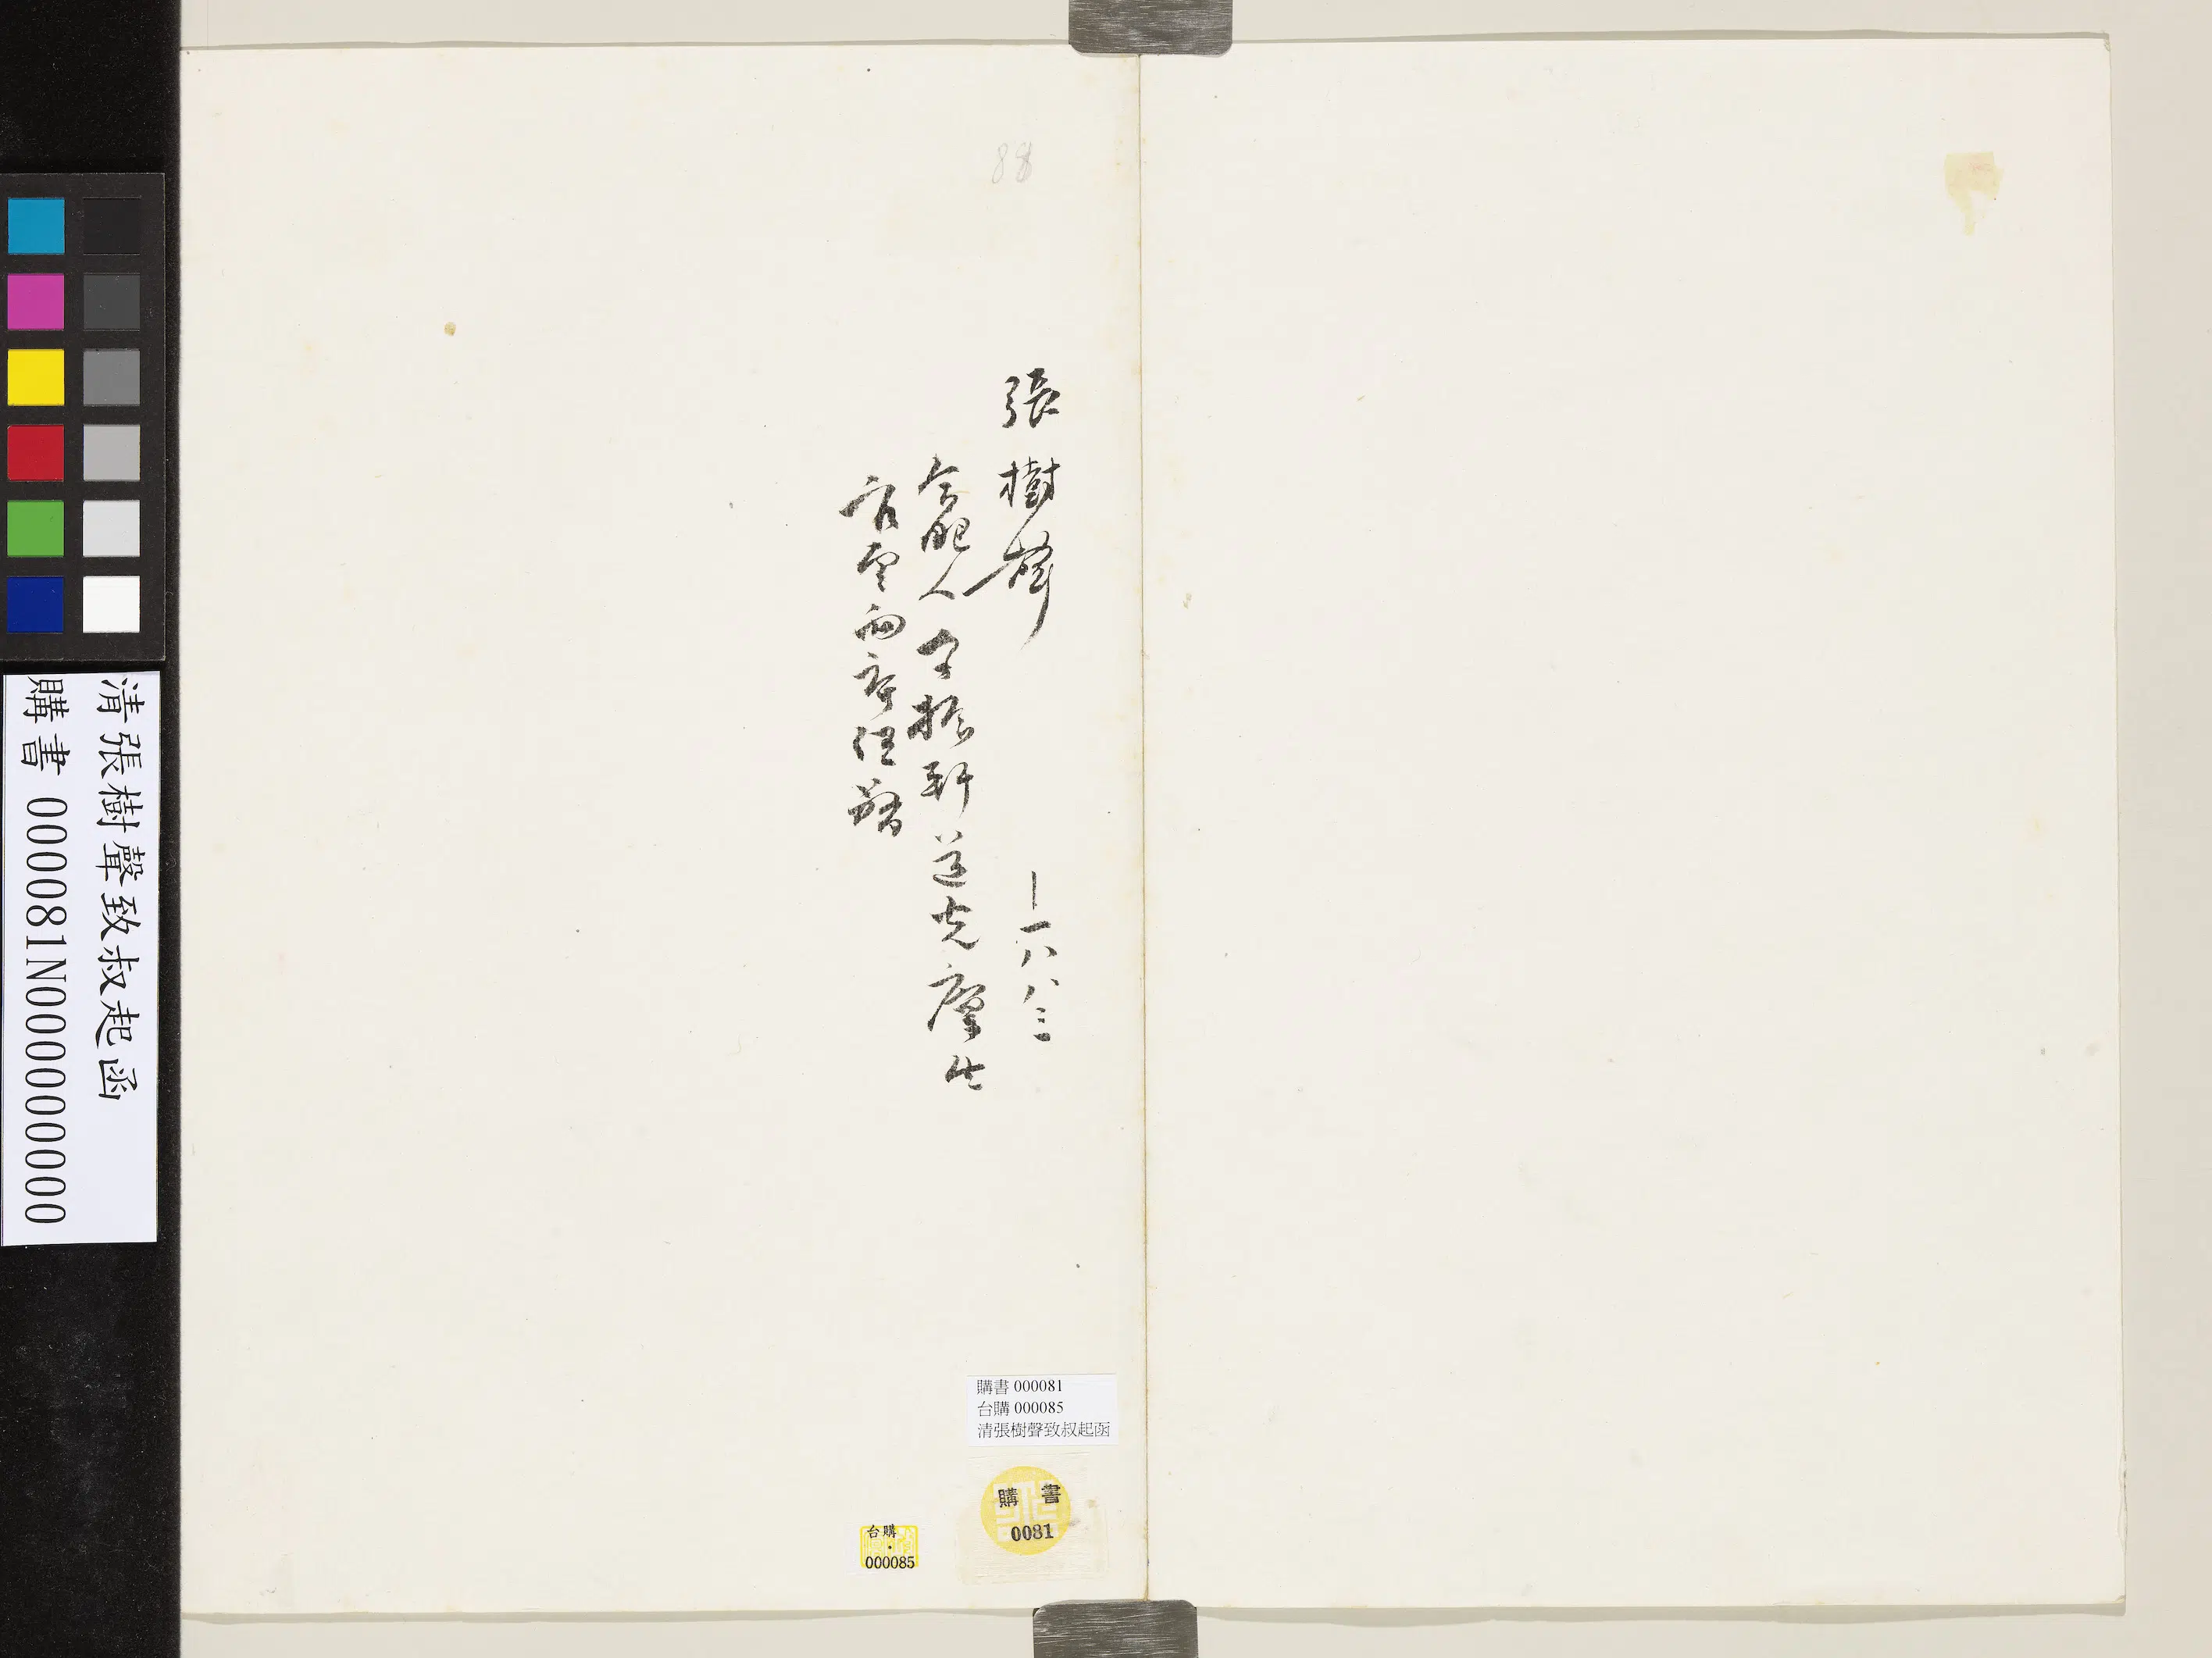 88
張樹聲
—一八八三
合肥人字振軒道光廩生
官雲南布經歷
購書 000081
台購 000085
清張樹聲致叔起函
購書
0081
台購
000085
清張樹聲致叔起函
購書 000081N000000000